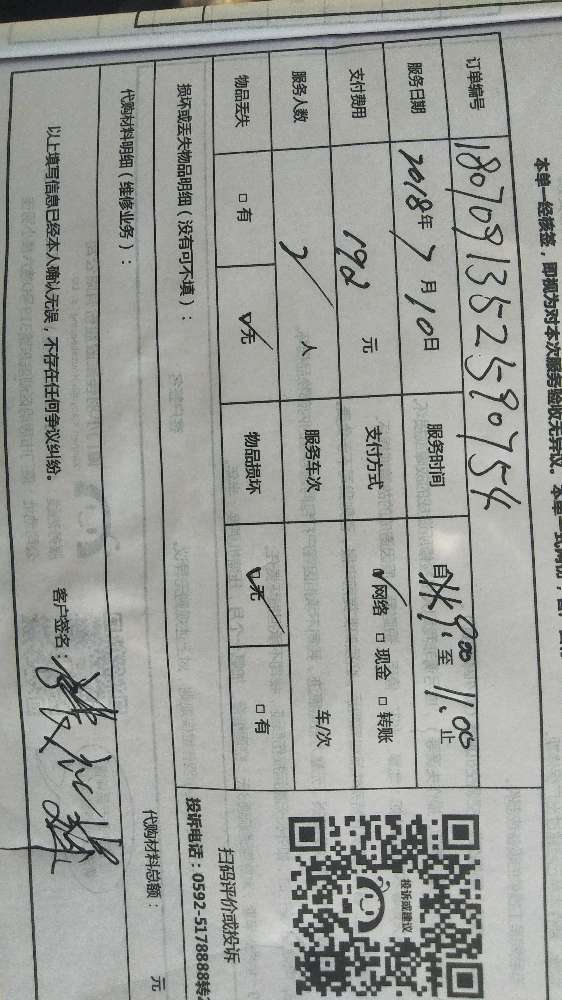 本单一经核签，即视为对本次服务验收无异议。本单一式两份，
订单编号 1807091352590754
服务日期 2018年7月10日 服务时间 自 9:00 至 11:00 止
支付费用 192 元 支付方式 ☑网络 □现金 □转账
服务人数 2 人 服务车次 车/次
物品丢失 □有 ☑无 物品损坏 ☑无 □有
损坏或丢失物品明细（没有可不填）：
代购材料明细（维修业务）：
代购材料总额： 元
以上填写信息已经本人确认无误，不存在任何争议纠纷。
客户签名：
投诉或建议
扫码评价或投诉
投诉电话：0592-5178888转2